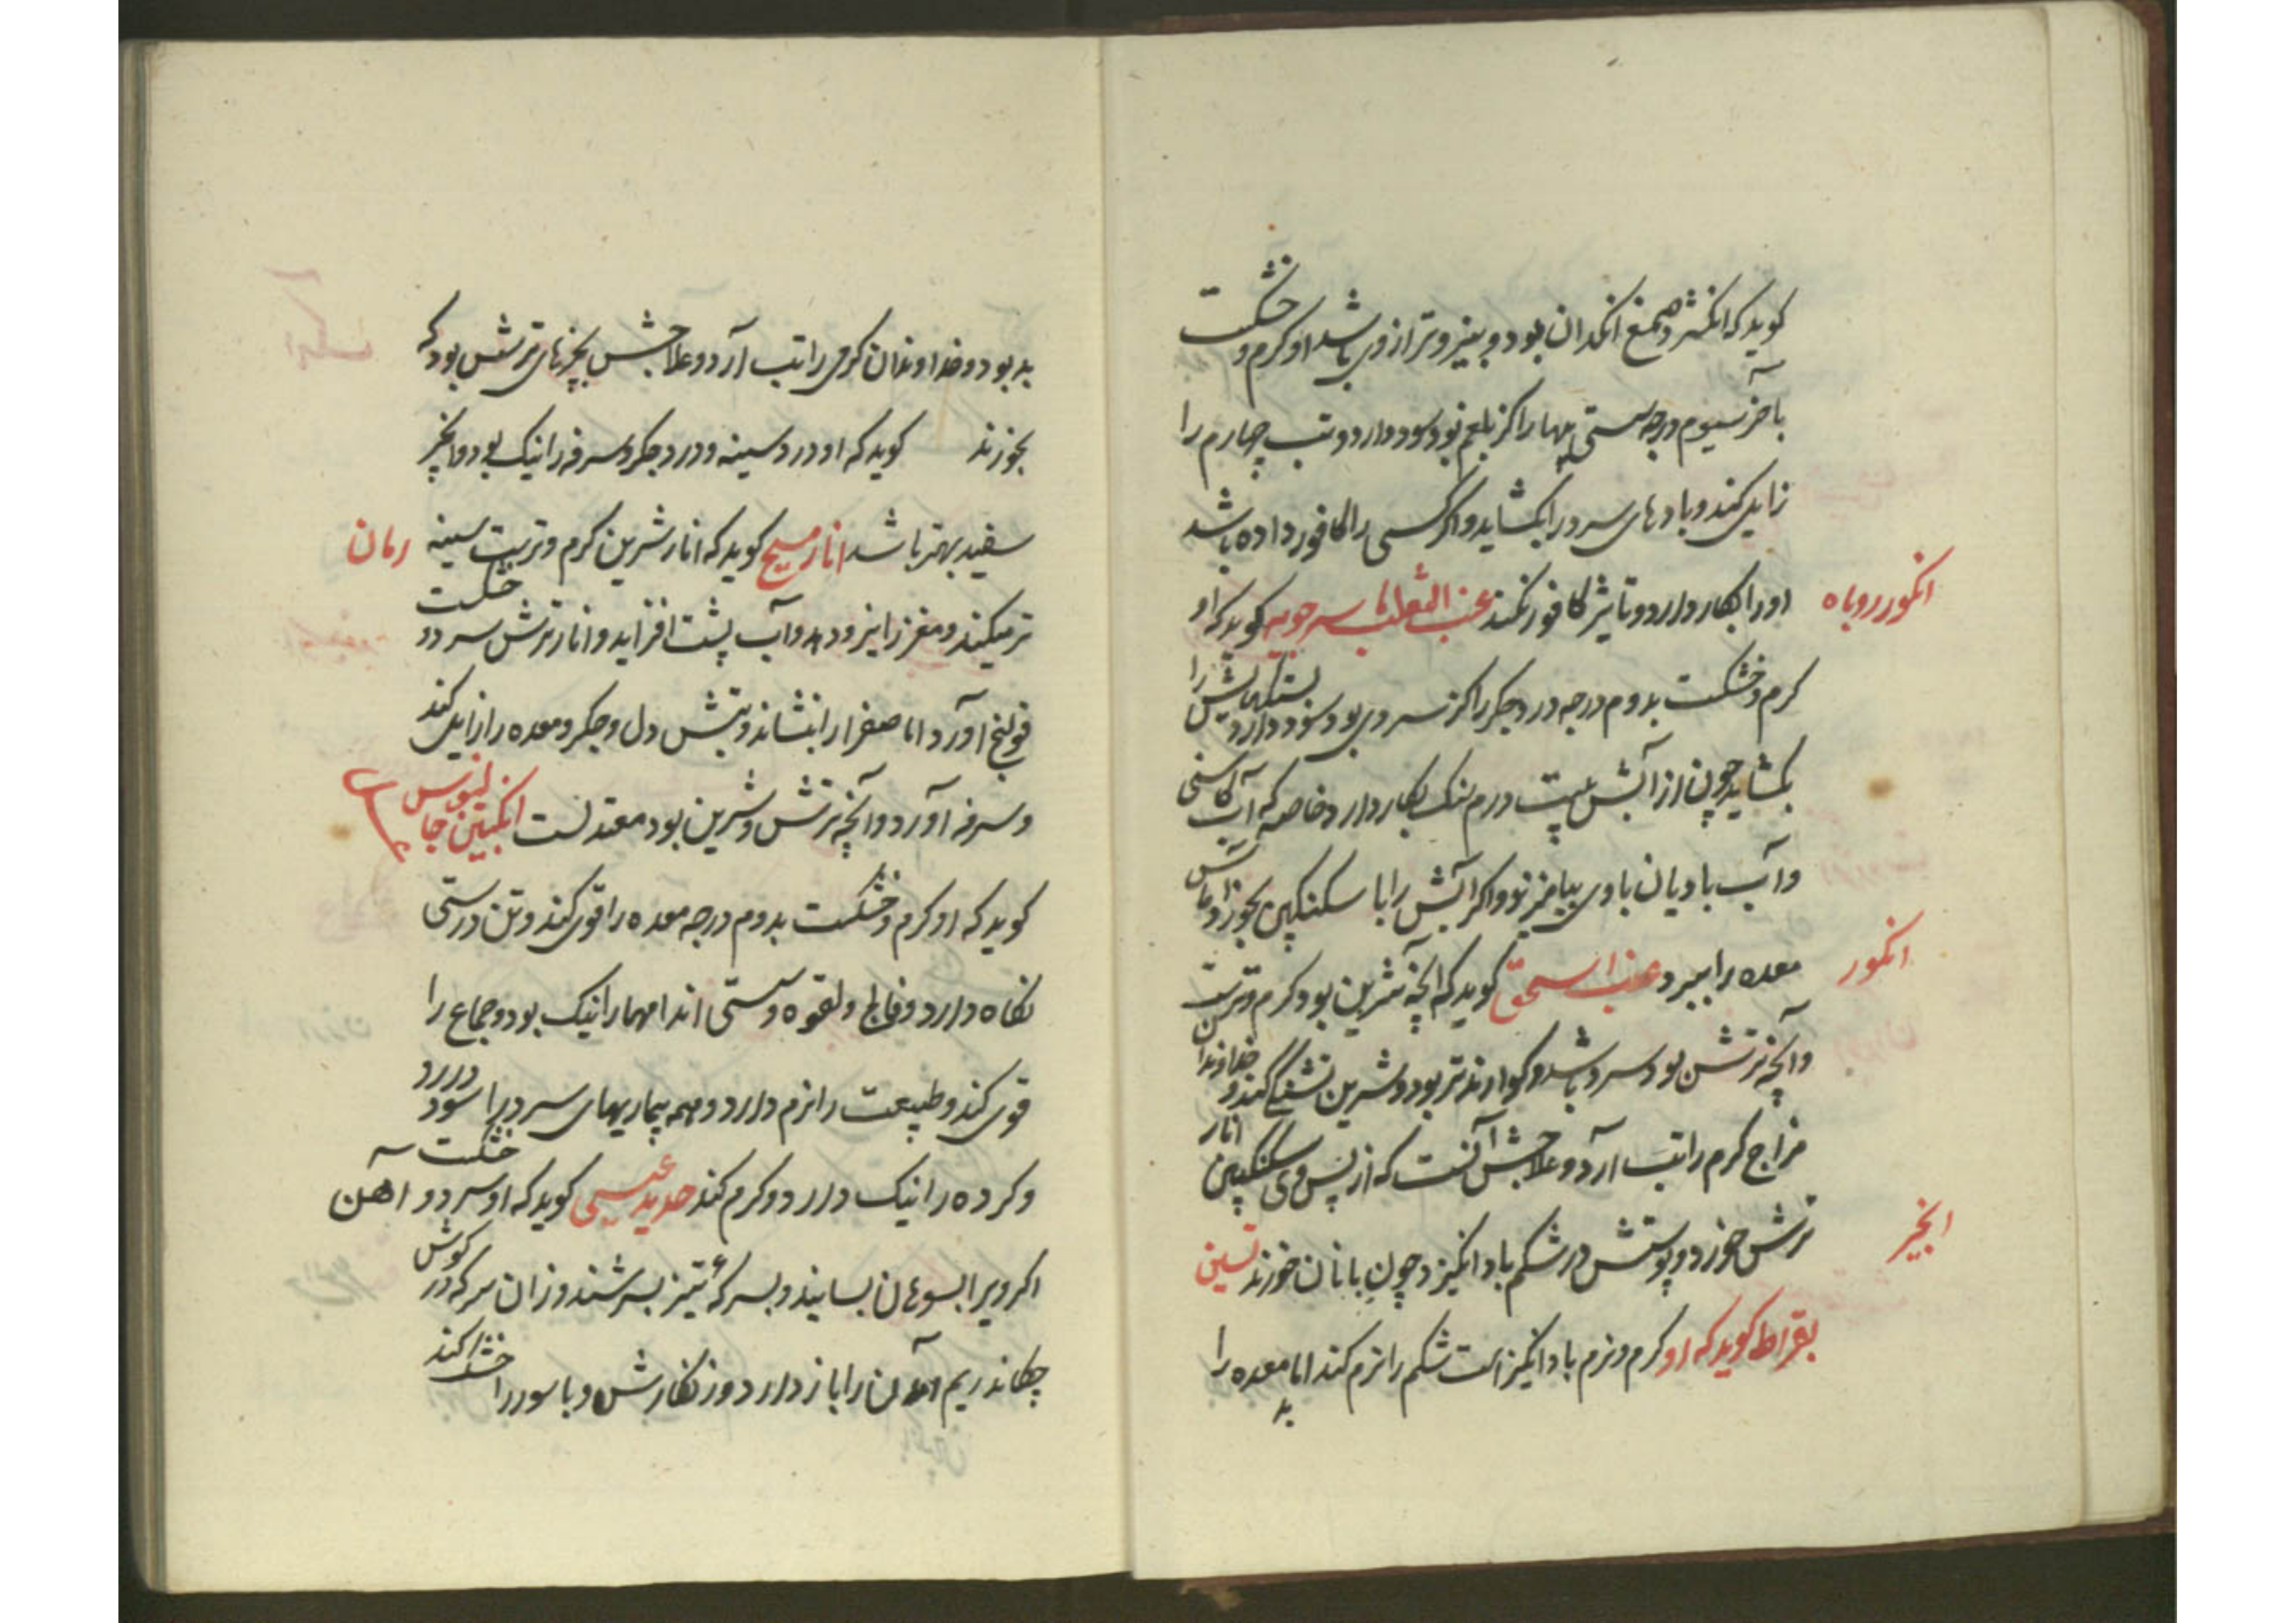 کوید که انکژد صمغ انکدان بود و بنیروتر از وی باشد او کرم و خشکست
بآخر سیوم درجه سستی پیها را کز بلغم بود سود دارد و تب چهارم را
زایل کند و بادهای سرد را بکشاید و اکر کسی را کافور داده باشد
انکور روباه
او را بکار دارد و تاثیر کافور نکند عنب الثعلب ماسرجویه کوید که او
کرم و خشکست بدوم درجه درد جکر را کز سردی بود سود دارد و بستکیهایش را
بکشاید چون از آبش بیست درم سنک بکار دارد خاصه که آب کاسنی
و آب بادیان با وی بیامیزند و اکر آبش را با سکنکبین بخورد آماس
انکور
معده را ببرد عنب اسحق کوید که آنچه شیرین بود کرم و ترست
و آنچه ترش بود سرد باشد و کوارنده‌تر بود و شیرین تشنکی کند و خداوندان
مزاج کرم را تب آرد و علاجش آنست که از پس وی سکنکبین انار
ترش خورد و پوستش در شکم باد انکیزد چون با نان خورند تین
انجیر
بقراط کوید که او کرم و نرم باد انکیز است شکم را نرم کند اما معده را
بد
بد بود و خداوندان کرمی را تب آرد و علاجش بچیزهای ترش بود که
بخورند کوید که او درد سینه و درد جکر و سرفه را نیک بود و انجیر
سفید بهتر باشد انار مسیح کوید که انار شیرین کرم و ترست سینه
رمان
تر میکند و مغز را نیرو دهد و آب پشت افزاید و انار ترش سرد و خشکست
قولنج آورد اما صفرا را بنشاند و تبش دل و جکر و معده را زایل کند
و سرفه آورد و آنچه ترش و شیرین بود معتدلست انکبین جالینوس
کوید که او کرم و خشکست بدوم درجه معده را قوی کند و تن درستی
نکاه دارد و فالج و لقوه و سستی اندامها را نیک بود و جماع را
قوی کند و طبیعت را نرم دارد و همه بیماریهای سرد را سود دارد
و کرده را نیک دارد و کرم کند حدید عیسی کوید که او سرد و خشکست
آهن
اکر ویرا بسوهان بسایند و بسرکهٔ تیز بسرشند و زان سرکه در کوش
چکانند ریم آمدن را باز دارد و زنکارش و باسور را خشک کند